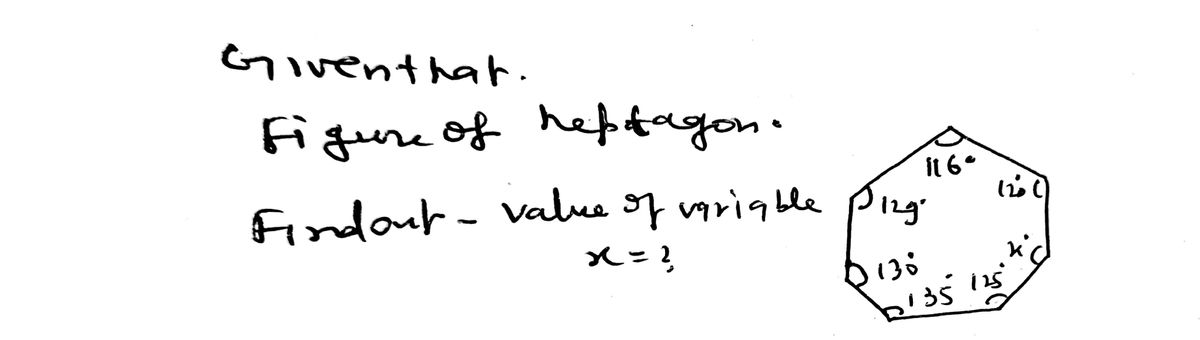 Given that.
Figure of heptagon.
Find out - value of variable
x = ?
116°
120°
129°
x°
130°
125°
135°